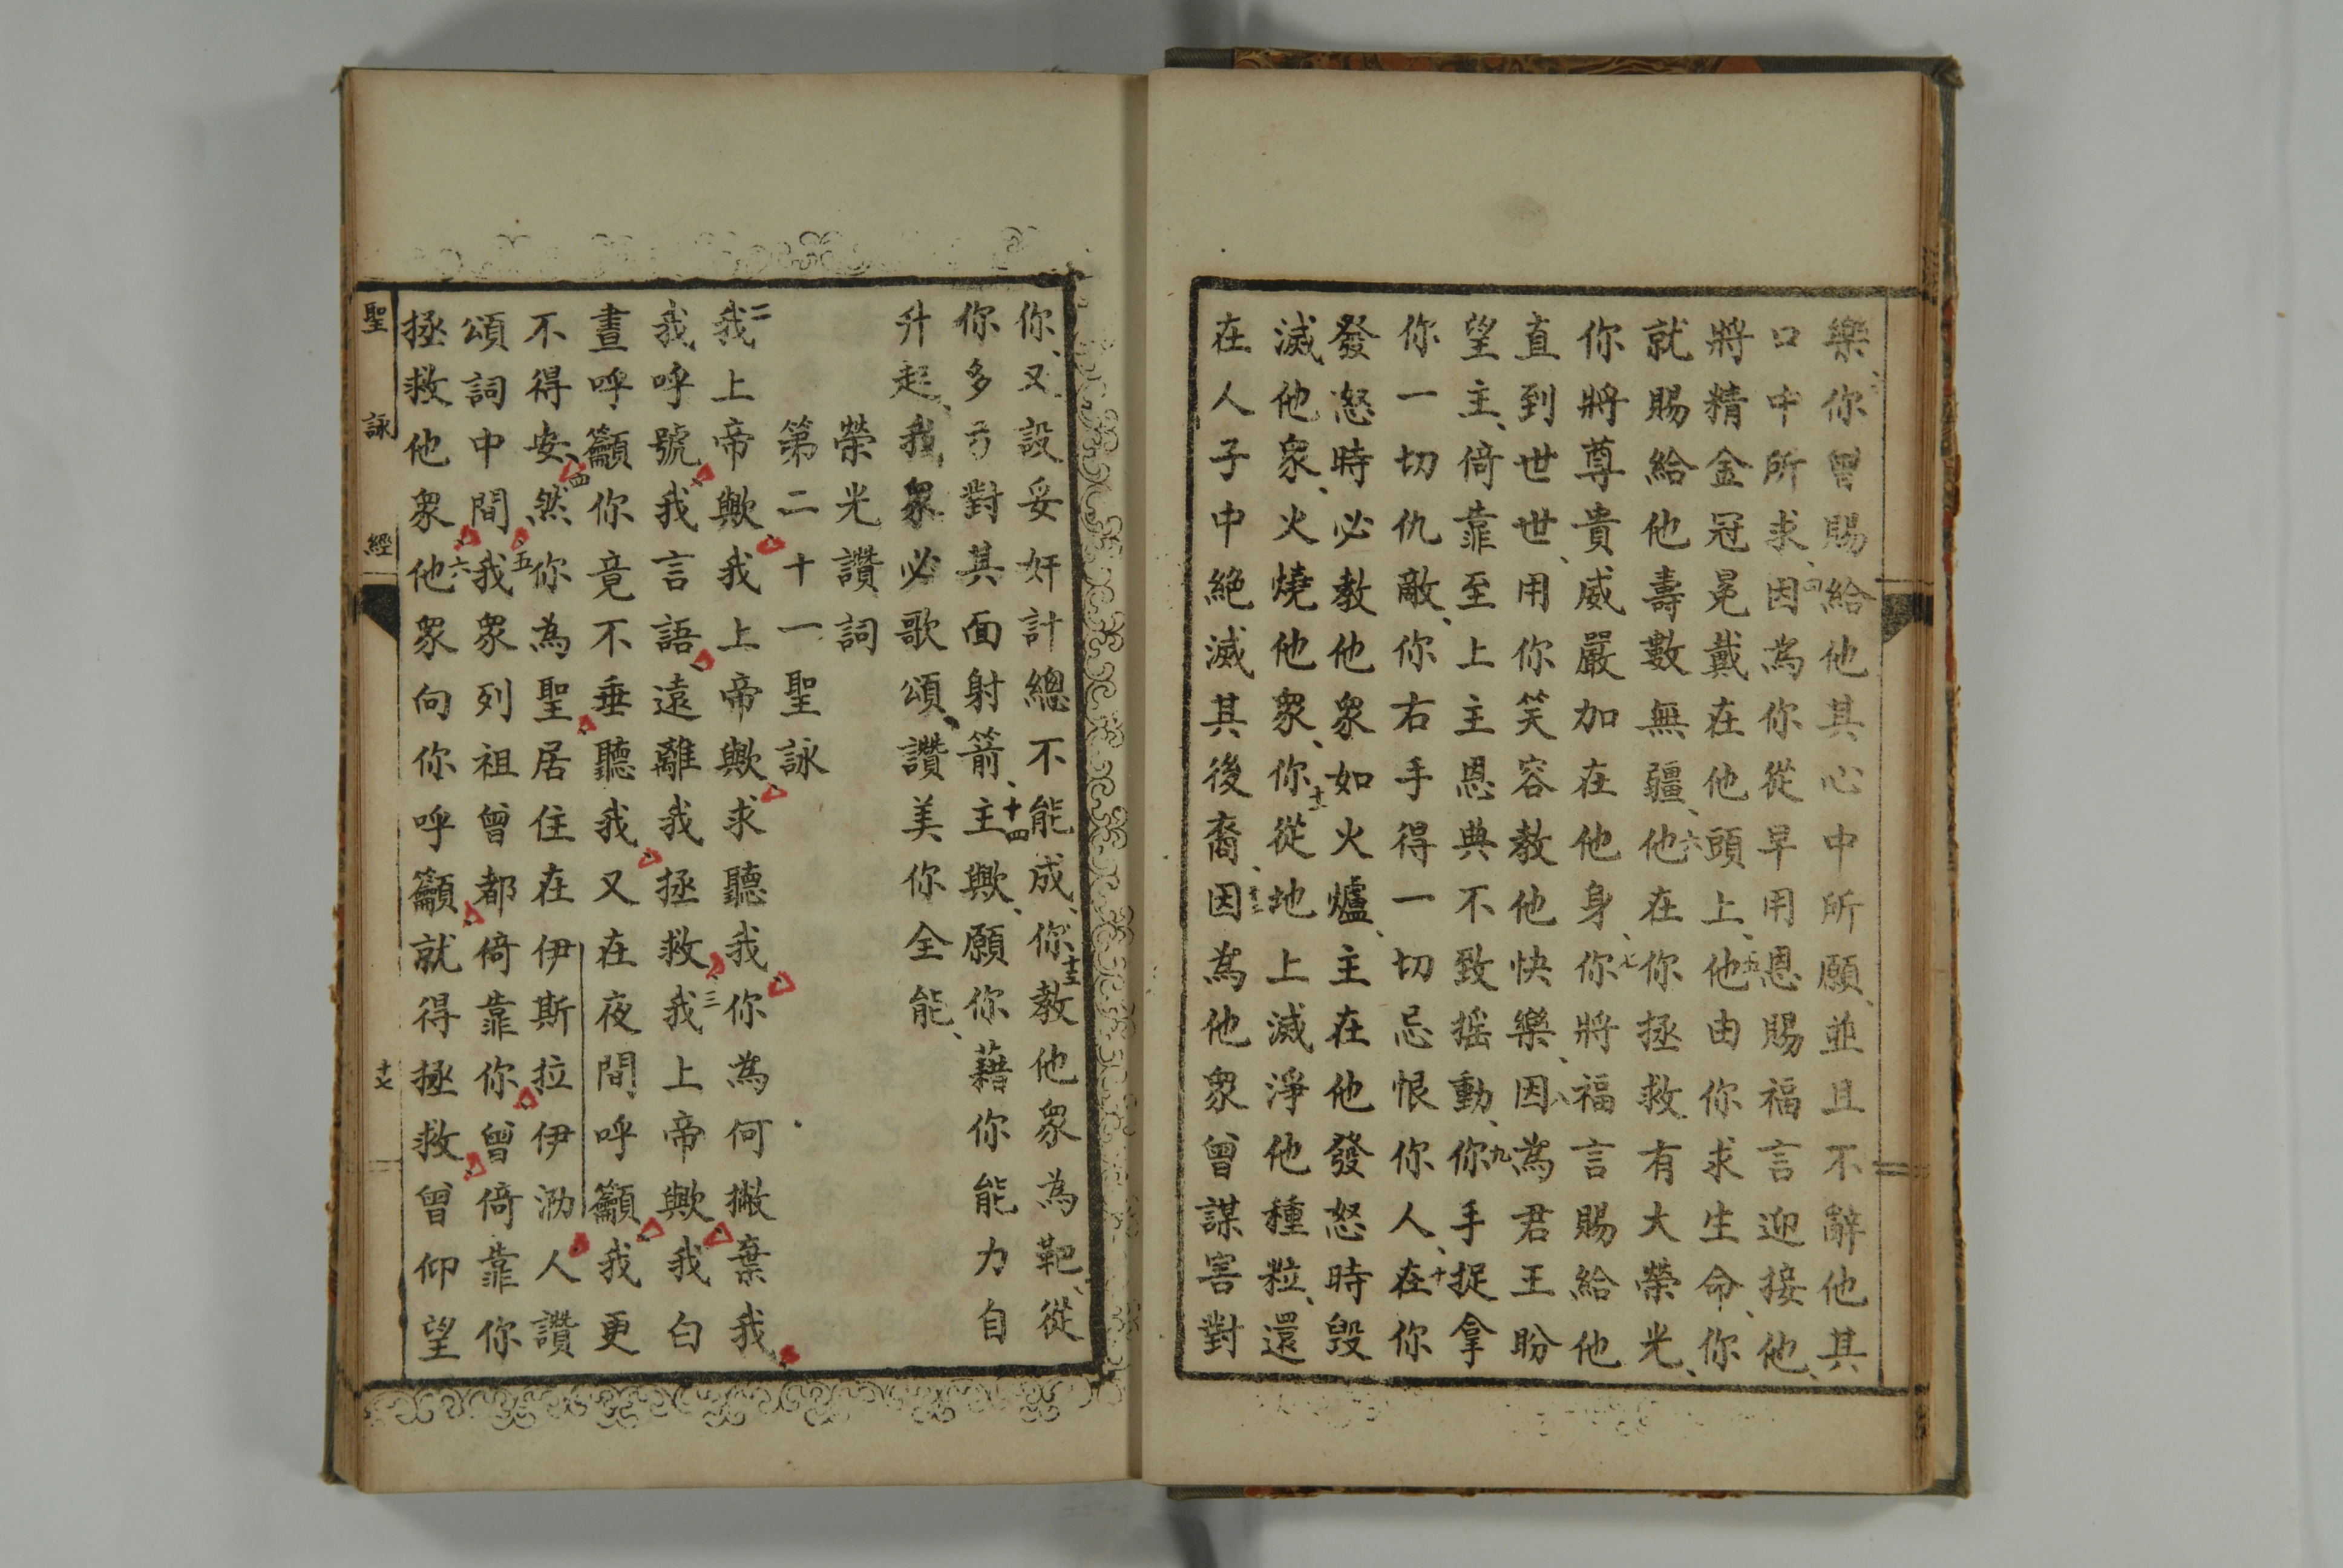 樂、你曾賜給他其心中所願、並且不辭他其
口中所求、四因為你從早用恩賜福言迎接他、
將精金冠冕戴在他頭上、五他由你求生命、你
就賜給他壽數無疆、六他在你拯救有大榮光、
你將尊貴威嚴加在他身、七你將福言賜給他
直到世世、用你笑容教他快樂、八因為君王盼
望主、倚靠至上主恩典不致搖動、九你手捉拿
你一切仇敵、你右手得一切忌恨你人、十在你
發怒時、必教他衆如火爐、主在他發怒時毀
滅他衆、火燒他衆、十一你從地上滅淨他種粒、還
在人子中絕滅其後裔、十二因為他衆曾謀害對
你、又設妥奸計總不能成、十三你教他衆為靶、從
你多弓對其面射箭、十四主歟、願你藉你能力自
升起、我衆必歌頌、讚美你全能、
榮光讚詞
第二十一聖詠
二我上帝歟我上帝歟求聽我你為何撇棄我
我呼號我言語遠離我拯救我三我上帝歟我白
晝呼籲你竟不垂聽我又在夜間呼籲我更
不得安、四然你為聖居住在伊斯拉伊泐人讚
頌詞中間、五我衆列祖曾都倚靠你曾倚靠你
拯救他衆六他衆向你呼籲就得拯救曾仰望
聖詠經 十七